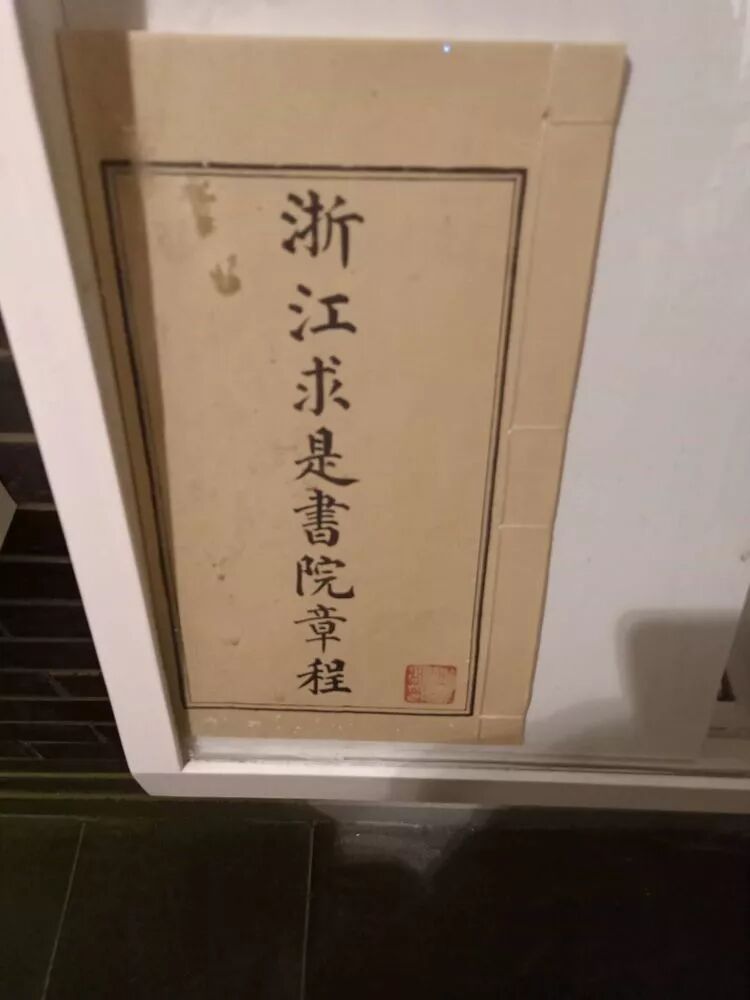 浙江求是書院章程